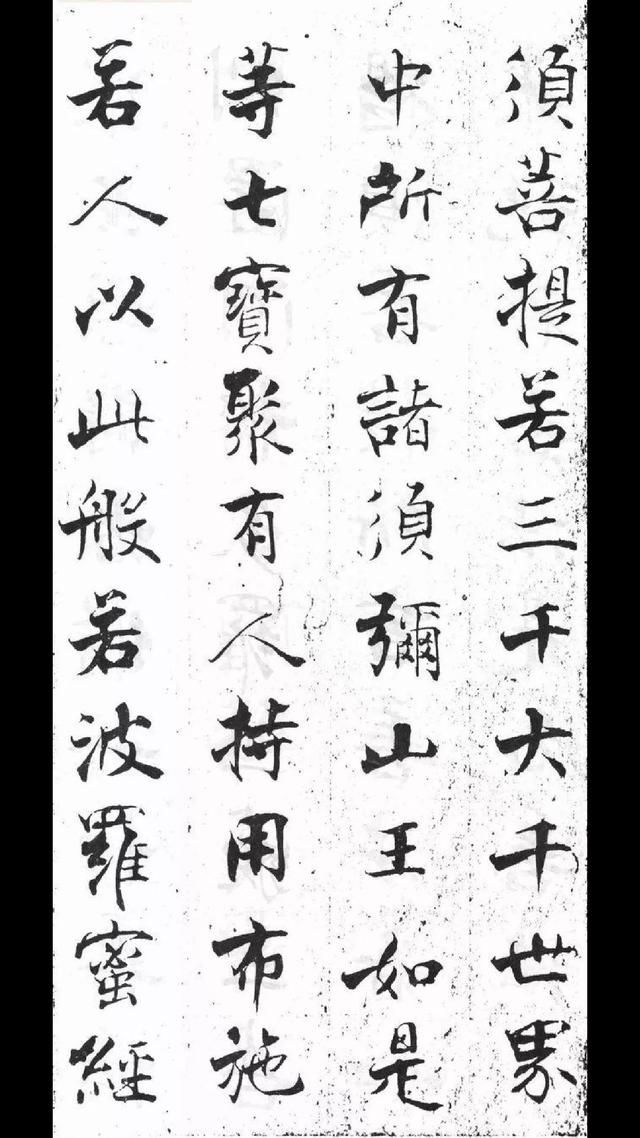 須菩提若三千大千世界
中所有諸須彌山王如是
等七寶聚有人持用布施
若人以此般若波羅蜜經